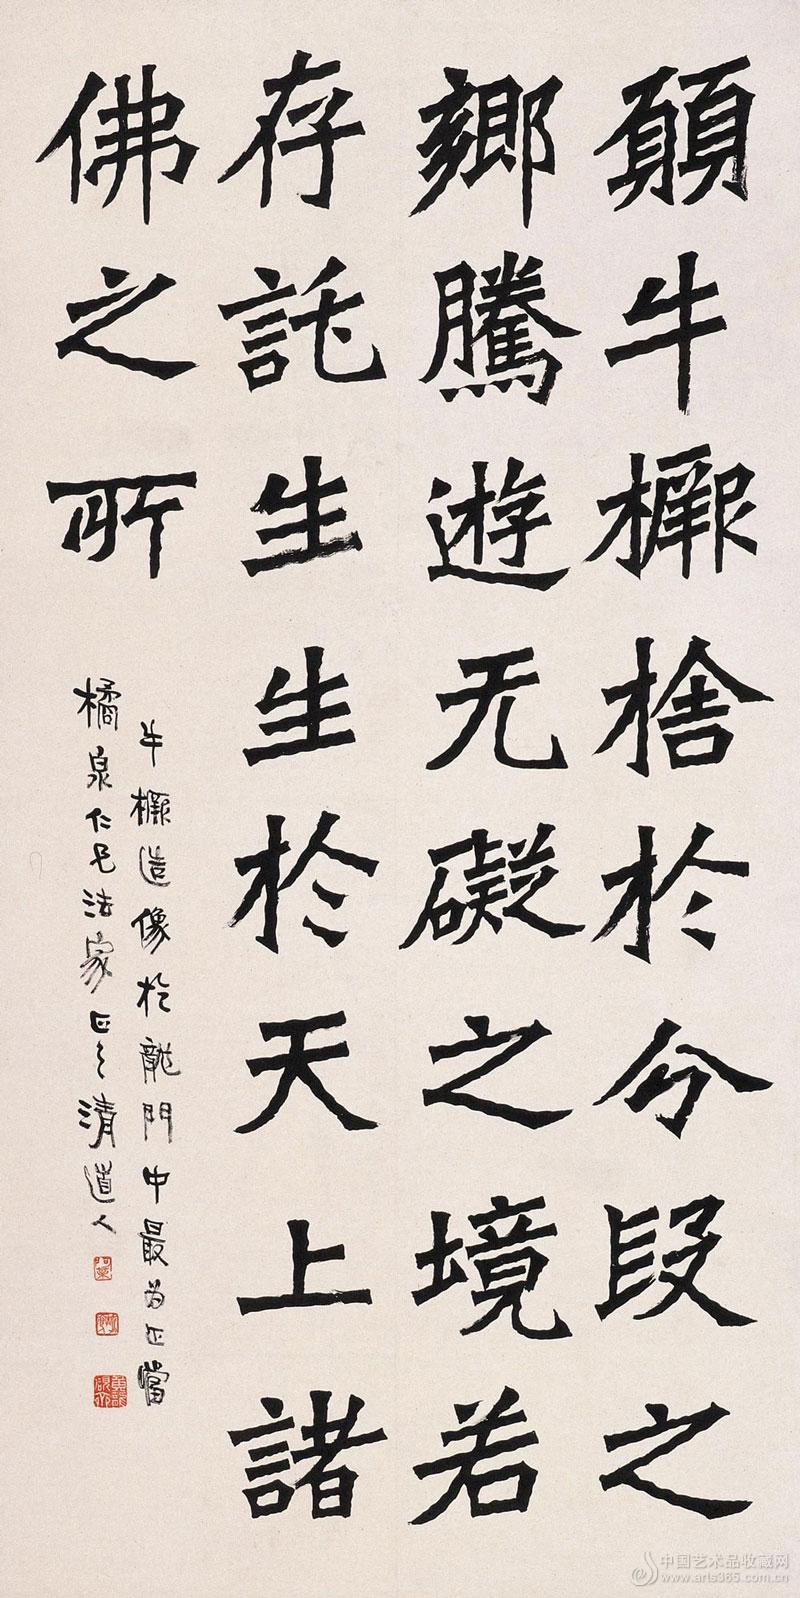 願牛橛捨於分段之
鄉騰遊无礙之境若
存託生生於天上諸
佛之所
牛橛造像於龍門中最為正當
橘泉仁兄法家正之清道人
中国艺术品收藏网
www.arts365.com.cn